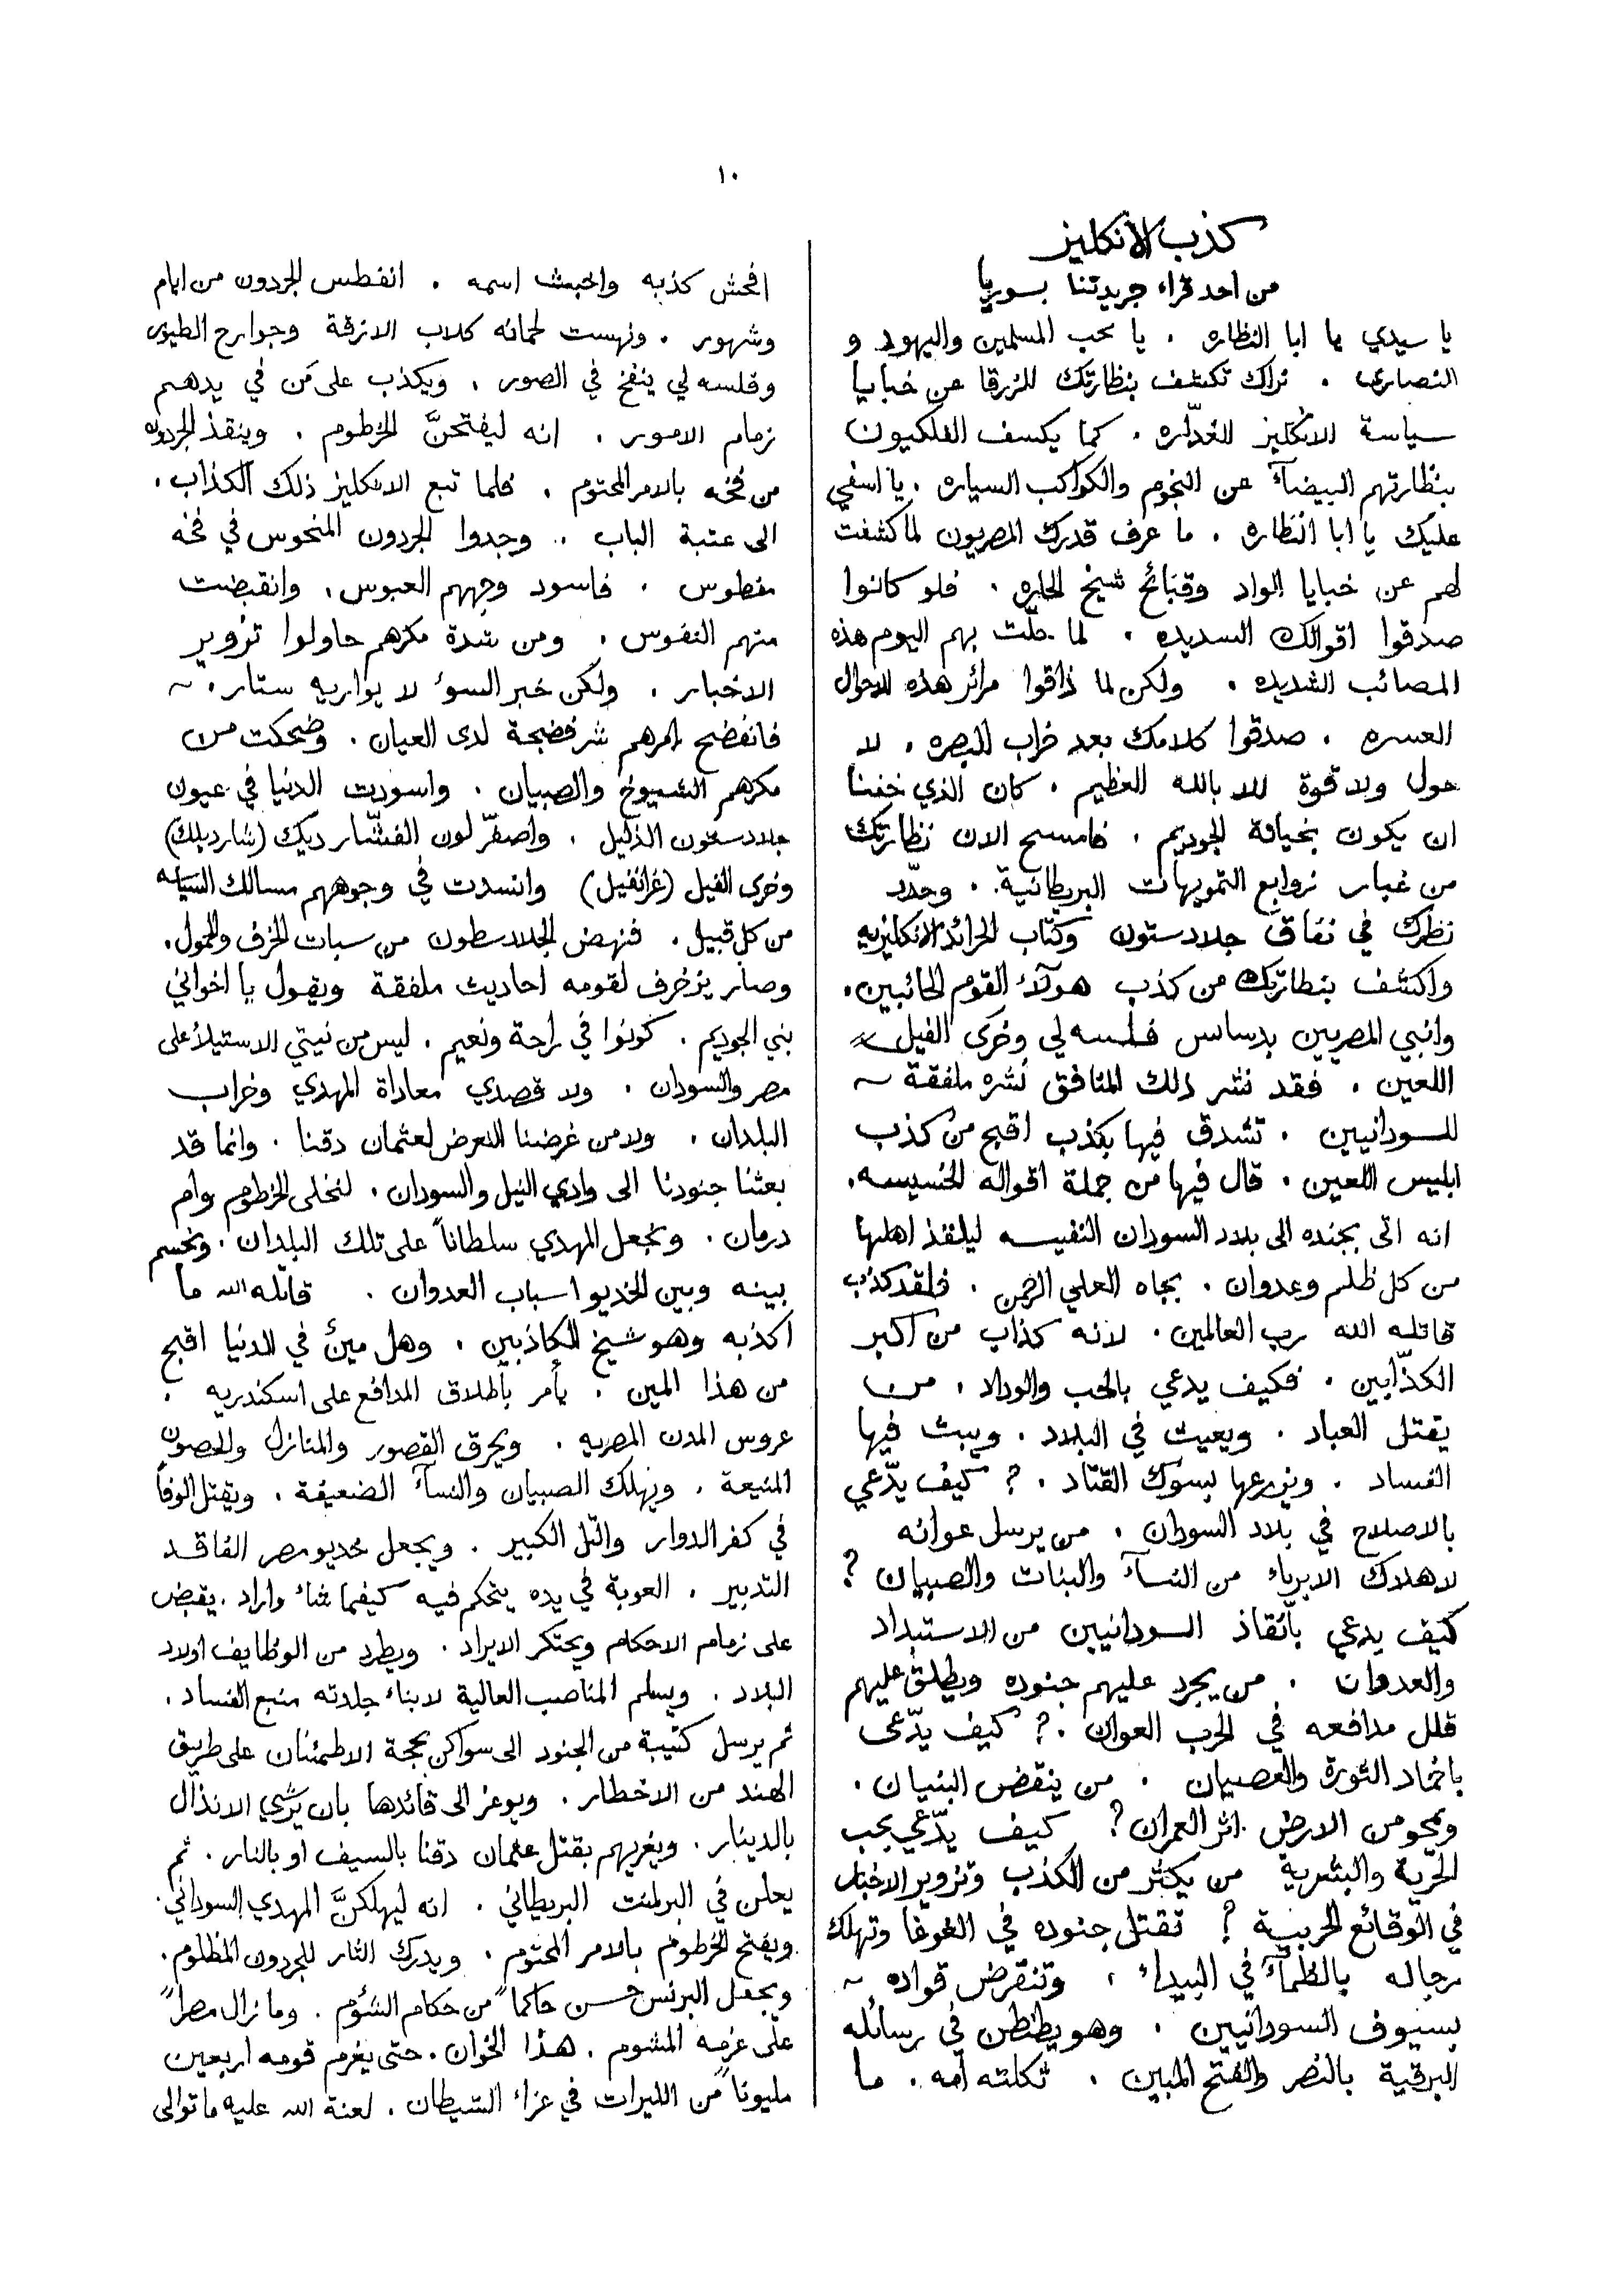 ١٠
كذب الانكليز
من احد قراء جريدتنا بسوريا
يا سيدي يا ابا النظاره . يا محب المسلمين واليهود و
النصارى . نراك تكشف بنظارتك الزرقا عن خبايا
سياسة الانكليز الغدّاره . كما يكسف الفلكيون
بنظارتهم البيضآء عن النجوم والكواكب السياره . يا اسفي
عليك يا ابا النظاره . ما عرف قدرك المصريون لما كشفت
لهم عن خبايا الواد وقبائح شيخ الحاره . فلو كانوا
صدقوا اقوالك السديده . لما حلّت بهم اليوم هذه
المصائب الشديده . ولكن لما ذاقوا مرائر هذه الاحوال
العسره . صدقوا كلامك بعد خراب البصره . لا
حول ولا قوة الا بالله العظيم . كان الذي خفنا
ان يكون بخيانة الجوديم . فامسح الان نظارتك
من غبار زوابع التمويهات البريطانية . وحدّد
نظرك في نفاق جلادستون وكتّاب الجرائد الانكليزيه
واكشف بنظارتك من كذب هولآء القوم الخائبين .
وانبي المصريين بدسائس فلسه لي وخرى الفيل
اللعين . فقد نشر ذلك المنافق نشره ملفقة ~
للسودانيين . تشدق فيها بكذب اقبح من كذب
ابليس اللعين . قال فيها من جملة اقواله الخسيسه .
انه اتى بجنده الى بلاد السودان النفيسه لينقذ اهلها
من كل ظلم وعدوان . بجاه العلي الرحمن . فلقد كذب
قاتله الله رب العالمين . لانه كذاب من اكبر
الكذّابين . فكيف يدعي بالحب والوداد . من
يقتل العباد . ويعيث في البلاد . ويبث فيها
الفساد . ويزرعها بسوك القتاد . ? كيف يدّعي
بالاصلاح في بلاد السودان . من يرسل عوانه
لاهلاك الابرياء من النسآء والبنات والصبيان ?
كيف يدعي بانقاذ السودانيين من الاستبداد
والعدوان . من يجرد عليهم جنوده ويطلق عليهم
قلل مدافعه في الحرب العوان . ? كيف يدّعى
باخماد الثورة والعصيان . من ينقض البنيان .
ويمحو من الارض اثر العمران ? كيف يدّعي بحب
الحرّية والبشرية من يكثر من الكذب وتزوير الاخبار
في الوقائع الحربية ? تقتل جنوده في الغوغا وتهلك
رجاله بالظمآء في البيداء . وتنقرض قواده ~
بسيوف السودانيين . وهو يطنطن في رسائله
البرقية بالنصر والفتح المبين . ثكلته امه . ما
افحش كذبه واخبث اسمه . انفطس الجردون من ايام
وشهور . ونهست لحمانه كلاب الازقة وجوارح الطيور
وفلسه لي ينفخ في الصور . ويكذب على مَن في يدهم
زمام الامور . انه ليفتحنَّ الخرطوم . وينقذ الجردون
من فخه بالامر المحتوم . فلما تبع الانكليز ذلك الكذاب .
الى عتبة الباب . وجدوا الجردون المنحوس في فخه
مفطوس . فاسود وجههم العبوس . وانقبضت
منهم النفوس . ومن شدة مكرهم حاولوا تزوير
الاخبار . ولكن خبر السوء لا يواريه ستار . ~
فانفضح امرهم شر فضيحة لدى العيان . وضحكت من
مكرهم الشيوخ والصبيان . واسودت الدنيا في عيون
جلادستون الذليل . واصفرّ لون الفشّار ديك (شارديلك)
وخرى الفيل (غرانفيل) وانسدت في وجوههم مسالك السياسه
من كل قبيل . فنهض الجلادسطون من سبات الخرف والخمول .
وصار يزخرف لقومه احاديث ملفقة ويقول يا اخواني
بني الجوديم . كونوا في راحة ونعيم . ليس من نيتي الاستيلاء على
مصر والسودان . ولا قصدي معاداة المهدي وخراب
البلدان . ولا من غرضنا التعرض لعثمان دقنا . وانما قد
بعثنا جنودنا الى وادي النيل والسودان . لنخلى الخرطوم وام
درمان . ونجعل المهدي سلطاناً على تلك البلدان . ونحسم
بينه وبين الخديو اسباب العدوان . قاتله الله ما
اكذبه وهو شيخ الكاذبين . وهل مينٌ في الدنيا اقبح
من هذا المين . يأمر باطلاق المدافع على اسكندريه .
عروس المدن المصريه . ويحرق القصور والمنازل والحصون
المنيعة . ويهلك الصبيان والنسآء الضعيفة . ويقتل الوفاً
في كفر الدوار والتل الكبير . ويجعل خديو مصر الفاقد
التدبير . العوبة في يده يتحكم فيه كيفما شاء واراد . يقبض
على زمام الاحكام ويحتكر الايراد . ويطرد من الوظايف اولاد
البلاد . ويسلم المناصب العالية لابناء جلدته منبع الفساد .
ثم يرسل كتيبة من الجنود الى سواكن بحجة الاطمئنان على طريق
الهند من الاخطار . ويوعز الى قائدها بان يرشي الانذال
بالدينار . ويغريهم بقتل عثمان دقنا بالسيف او بالنار . ثم
يعلن في البرلمنت البريطاني . انه ليهلكنَّ المهدي السوداني .
ويفتح الخرطوم بالامر المحتوم . ويدرك الثار للجردون المظلوم .
ويجعل البرنس حسن حاكماً من حكام الشؤم . وما زال مصراً
على عزمه المشوم . هذا الخوان . حتى يغرم قومه اربعين
مليوناً من الليرات في عزاء الشيطان . لعنة الله عليه ما توالى